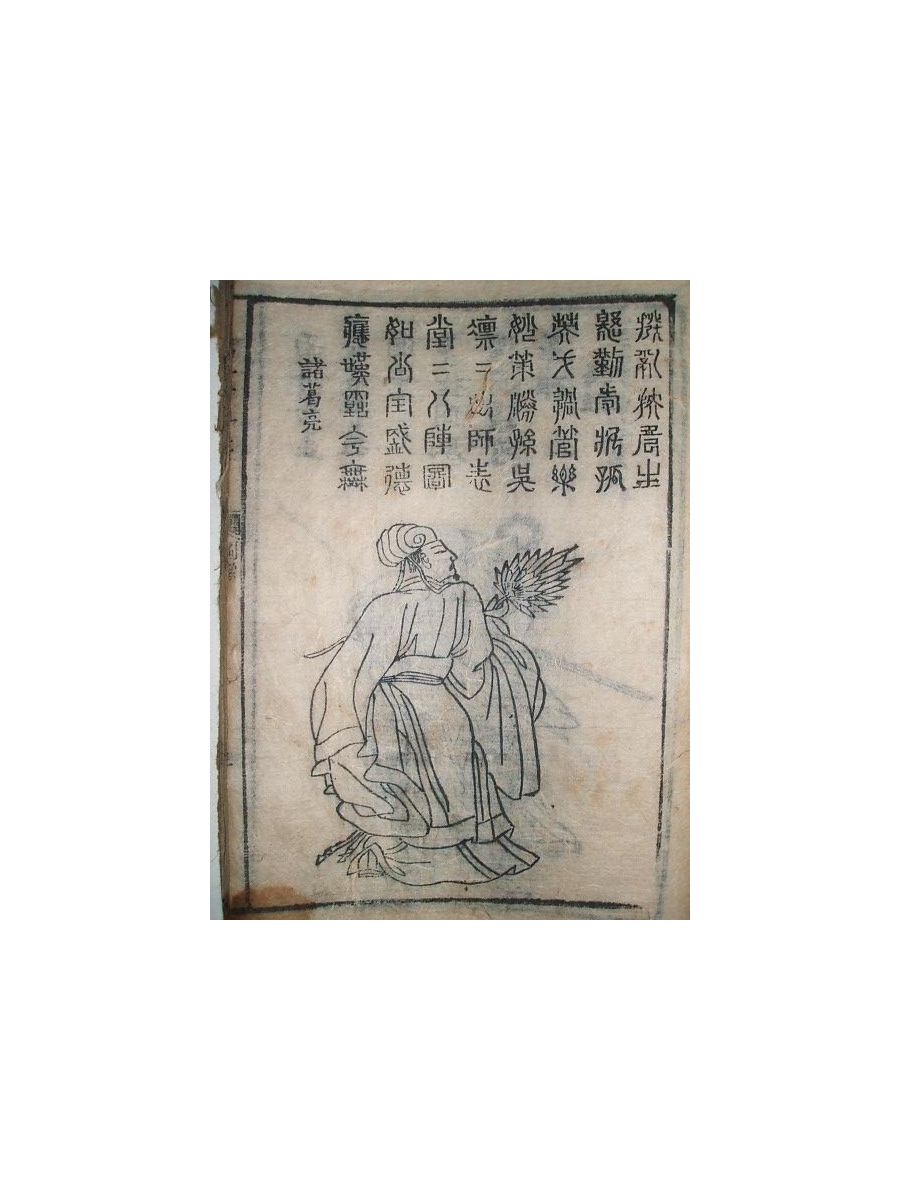 撥亂扶危主
慇勤受托孤
英才過管樂
妙策勝孫吳
凜〻出師表
堂〻八陣圖
如公全盛德
應嘆古今無
諸葛亮